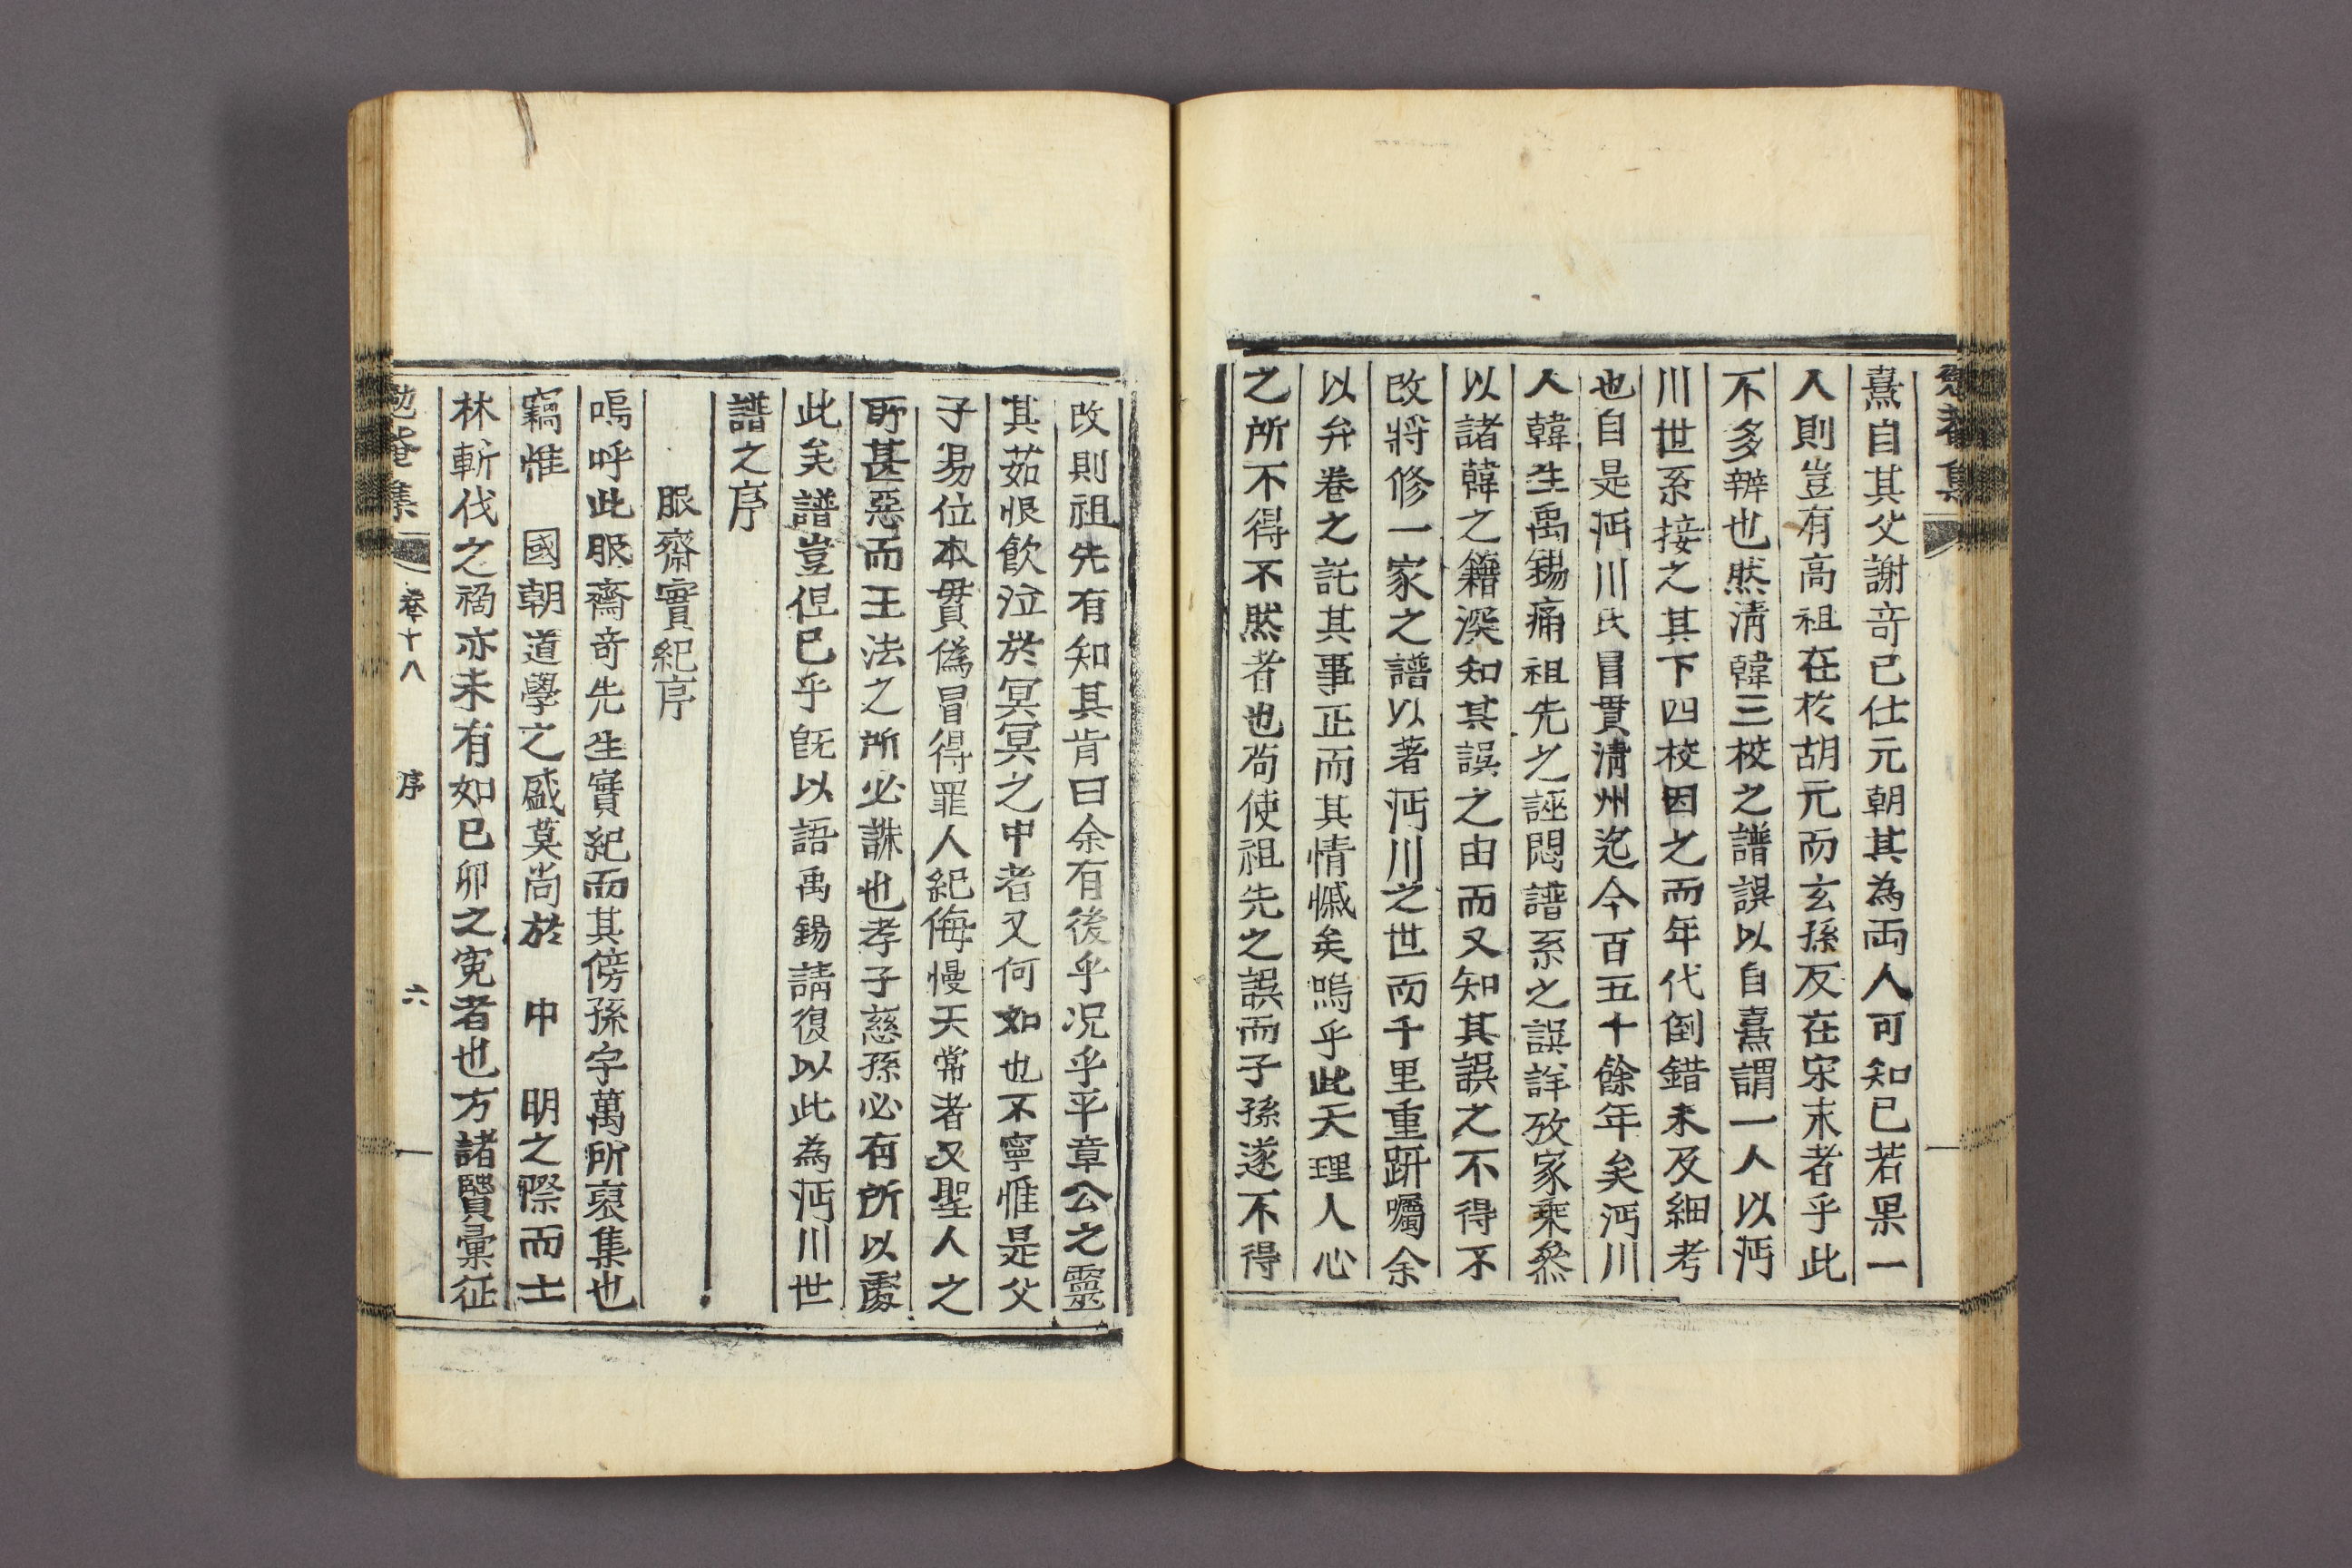 熹自其父謝奇已仕元朝其為両人可知已若果一
人則豈有高祖在於胡元而玄孫反在宋末者乎此
不多辨也然淸韓三校之譜誤以自熹謂一人以沔
川世系接之其下四校因之而年代倒錯未及細考
也自是沔川氏冒貫淸州迄今百五十餘年矣沔川
人韓生禹錫痛祖先之誣悶譜系之誤詳攷家乘叅
以諸韓之籍深知其誤之由而又知其誤之不得不
改將修一家之譜以著沔川之世而千里重趼囑余
以弁卷之託其事正而其情慽矣嗚乎此天理人心
之所不得不然者也尙使祖先之誤而子孫遂不得
改則祖先有知其肯曰余有後乎况乎平章公之靈
其茹恨飮泣於冥冥之中者又何如也不寧惟是父
子易位本貫僞冒得罪人紀侮慢天常者又聖人之
所甚惡而王法之所必誅也孝子慈孫必有所以處
此矣譜豈但已乎旣以語禹錫請復以此為沔川世
譜之序
服齋實紀序
嗚呼此服齋奇先生實紀而其傍孫宇萬所裒集也
竊惟 國朝道學之盛莫尙於 中 明之際而士
林斬伐之禍亦未有如己卯之寃者也方諸賢彙征
勉菴集 卷十八 序 六